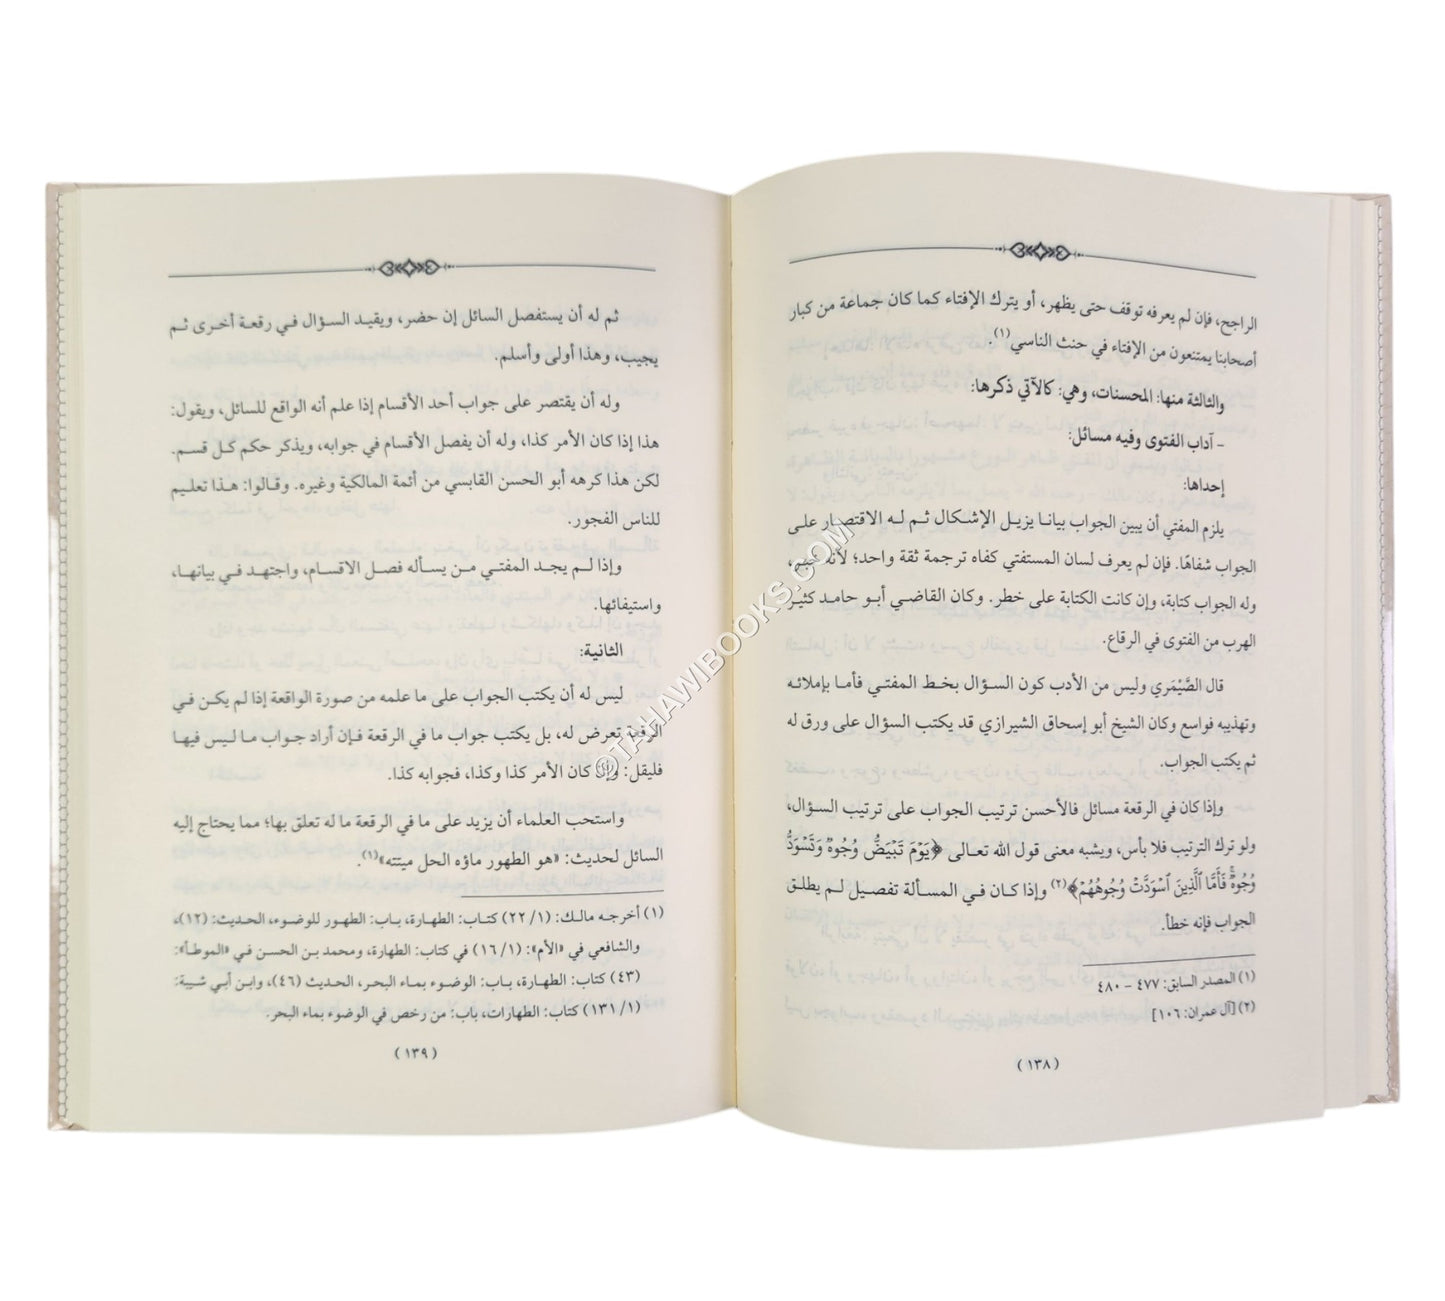 الراجح، فإن لم يعرفه توقف حتى يظهر، أو يترك الإفتاء كما كان جماعة من كبار
أصحابنا يمتنعون من الإفتاء في حنث الناسي(١).
والثالثة منها: المحسنات، وهي: كالآتي ذكرها:
- آداب الفتوى وفيه مسائل:
إحداها:
يلزم المفتي أن يبين الجواب بيانا يزيل الإشكال ثم له الاقتصار على
الجواب شفاهًا. فإن لم يعرف لسان المستفتي كفاه ترجمة ثقة واحد؛ لأنه خبر،
وله الجواب كتابة، وإن كانت الكتابة على خطر. وكان القاضي أبو حامد كثير
الهرب من الفتوى في الرقاع.
قال الصَّيْمَري وليس من الأدب كون السؤال بخط المفتي فأما بإملائه
وتهذيبه فواسع وكان الشيخ أبو إسحاق الشيرازي قد يكتب السؤال على ورق له
ثم يكتب الجواب.
وإذا كان في الرقعة مسائل فالأحسن ترتيب الجواب على ترتيب السؤال،
ولو ترك الترتيب فلا بأس، ويشبه معنى قول الله تعالى ﴿يَوْمَ تَبْيَضُّ وُجُوهٌ وَتَسْوَدُّ
وُجُوهٌ فَأَمَّا ٱلَّذِينَ ٱسْوَدَّتْ وُجُوهُهُمْ﴾(٢) وإذا كان في المسألة تفصيل لم يطلق
الجواب فإنه خطأ.
(١) المصدر السابق: ٤٧٧ - ٤٨٠
(٢) [آل عمران: ١٠٦]
(١٣٨)
ثم له أن يستفصل السائل إن حضر، ويقيد السؤال في رقعة أخرى ثم
يجيب، وهذا أولى وأسلم.
وله أن يقتصر على جواب أحد الأقسام إذا علم أنه الواقع للسائل، ويقول:
هذا إذا كان الأمر كذا، وله أن يفصل الأقسام في جوابه، ويذكر حكم كل قسم.
لكن هذا كرهه أبو الحسن القابسي من أئمة المالكية وغيره. وقالوا: هذا تعليم
للناس الفجور.
وإذا لم يجد المفتي من يسأله فصل الاقسام، واجتهد في بيانها،
واستيفائها.
الثانية:
ليس له أن يكتب الجواب على ما علمه من صورة الواقعة إذا لم يكن في
الرقعة تعرض له، بل يكتب جواب ما في الرقعة فإن أراد جواب ما ليس فيها
فليقل: وإن كان الأمر كذا وكذا، فجوابه كذا.
واستحب العلماء أن يزيد على ما في الرقعة ما له تعلق بها؛ مما يحتاج إليه
السائل لحديث: «هو الطهور ماؤه الحل ميتته»(١).
(١) أخرجه مالك: (١/ ٢٢) كتاب: الطهارة، باب: الطهور للوضوء، الحديث: (١٢)،
والشافعي في «الأم»: (١/ ١٦) في كتاب: الطهارة، ومحمد بن الحسن في «الموطأ»:
(٤٣) كتاب: الطهارة، باب: الوضوء بماء البحر، الحديث (٤٦)، وابن أبي شيبة:
(١/ ١٣١) كتاب: الطهارات، باب: من رخص في الوضوء بماء البحر.
(١٣٩)
©TAHAWIBOOKS.COM